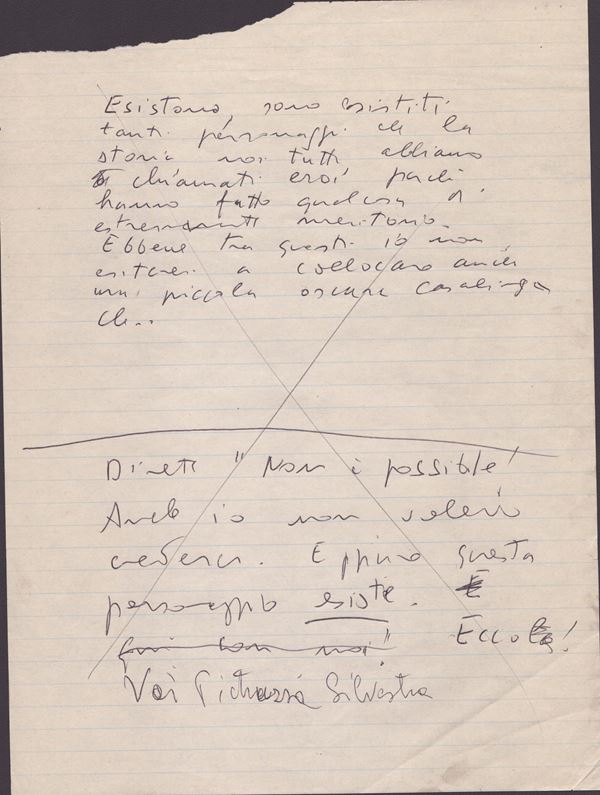 Esistono, sono esistiti
tanti personaggi che la
storia noi tutti abbiamo
chiamati eroi perché
hanno fatto qualcosa di
estremamente meritorio.
Ebbene tra questi io non
esiterei a collocare anche
una piccola oscura casalinga
che...
Direte "Non è possibile!
Anch'io non volevo
crederci. Eppure questo
personaggio esiste. E
qui con noi" Eccola!
Voi Silvestra